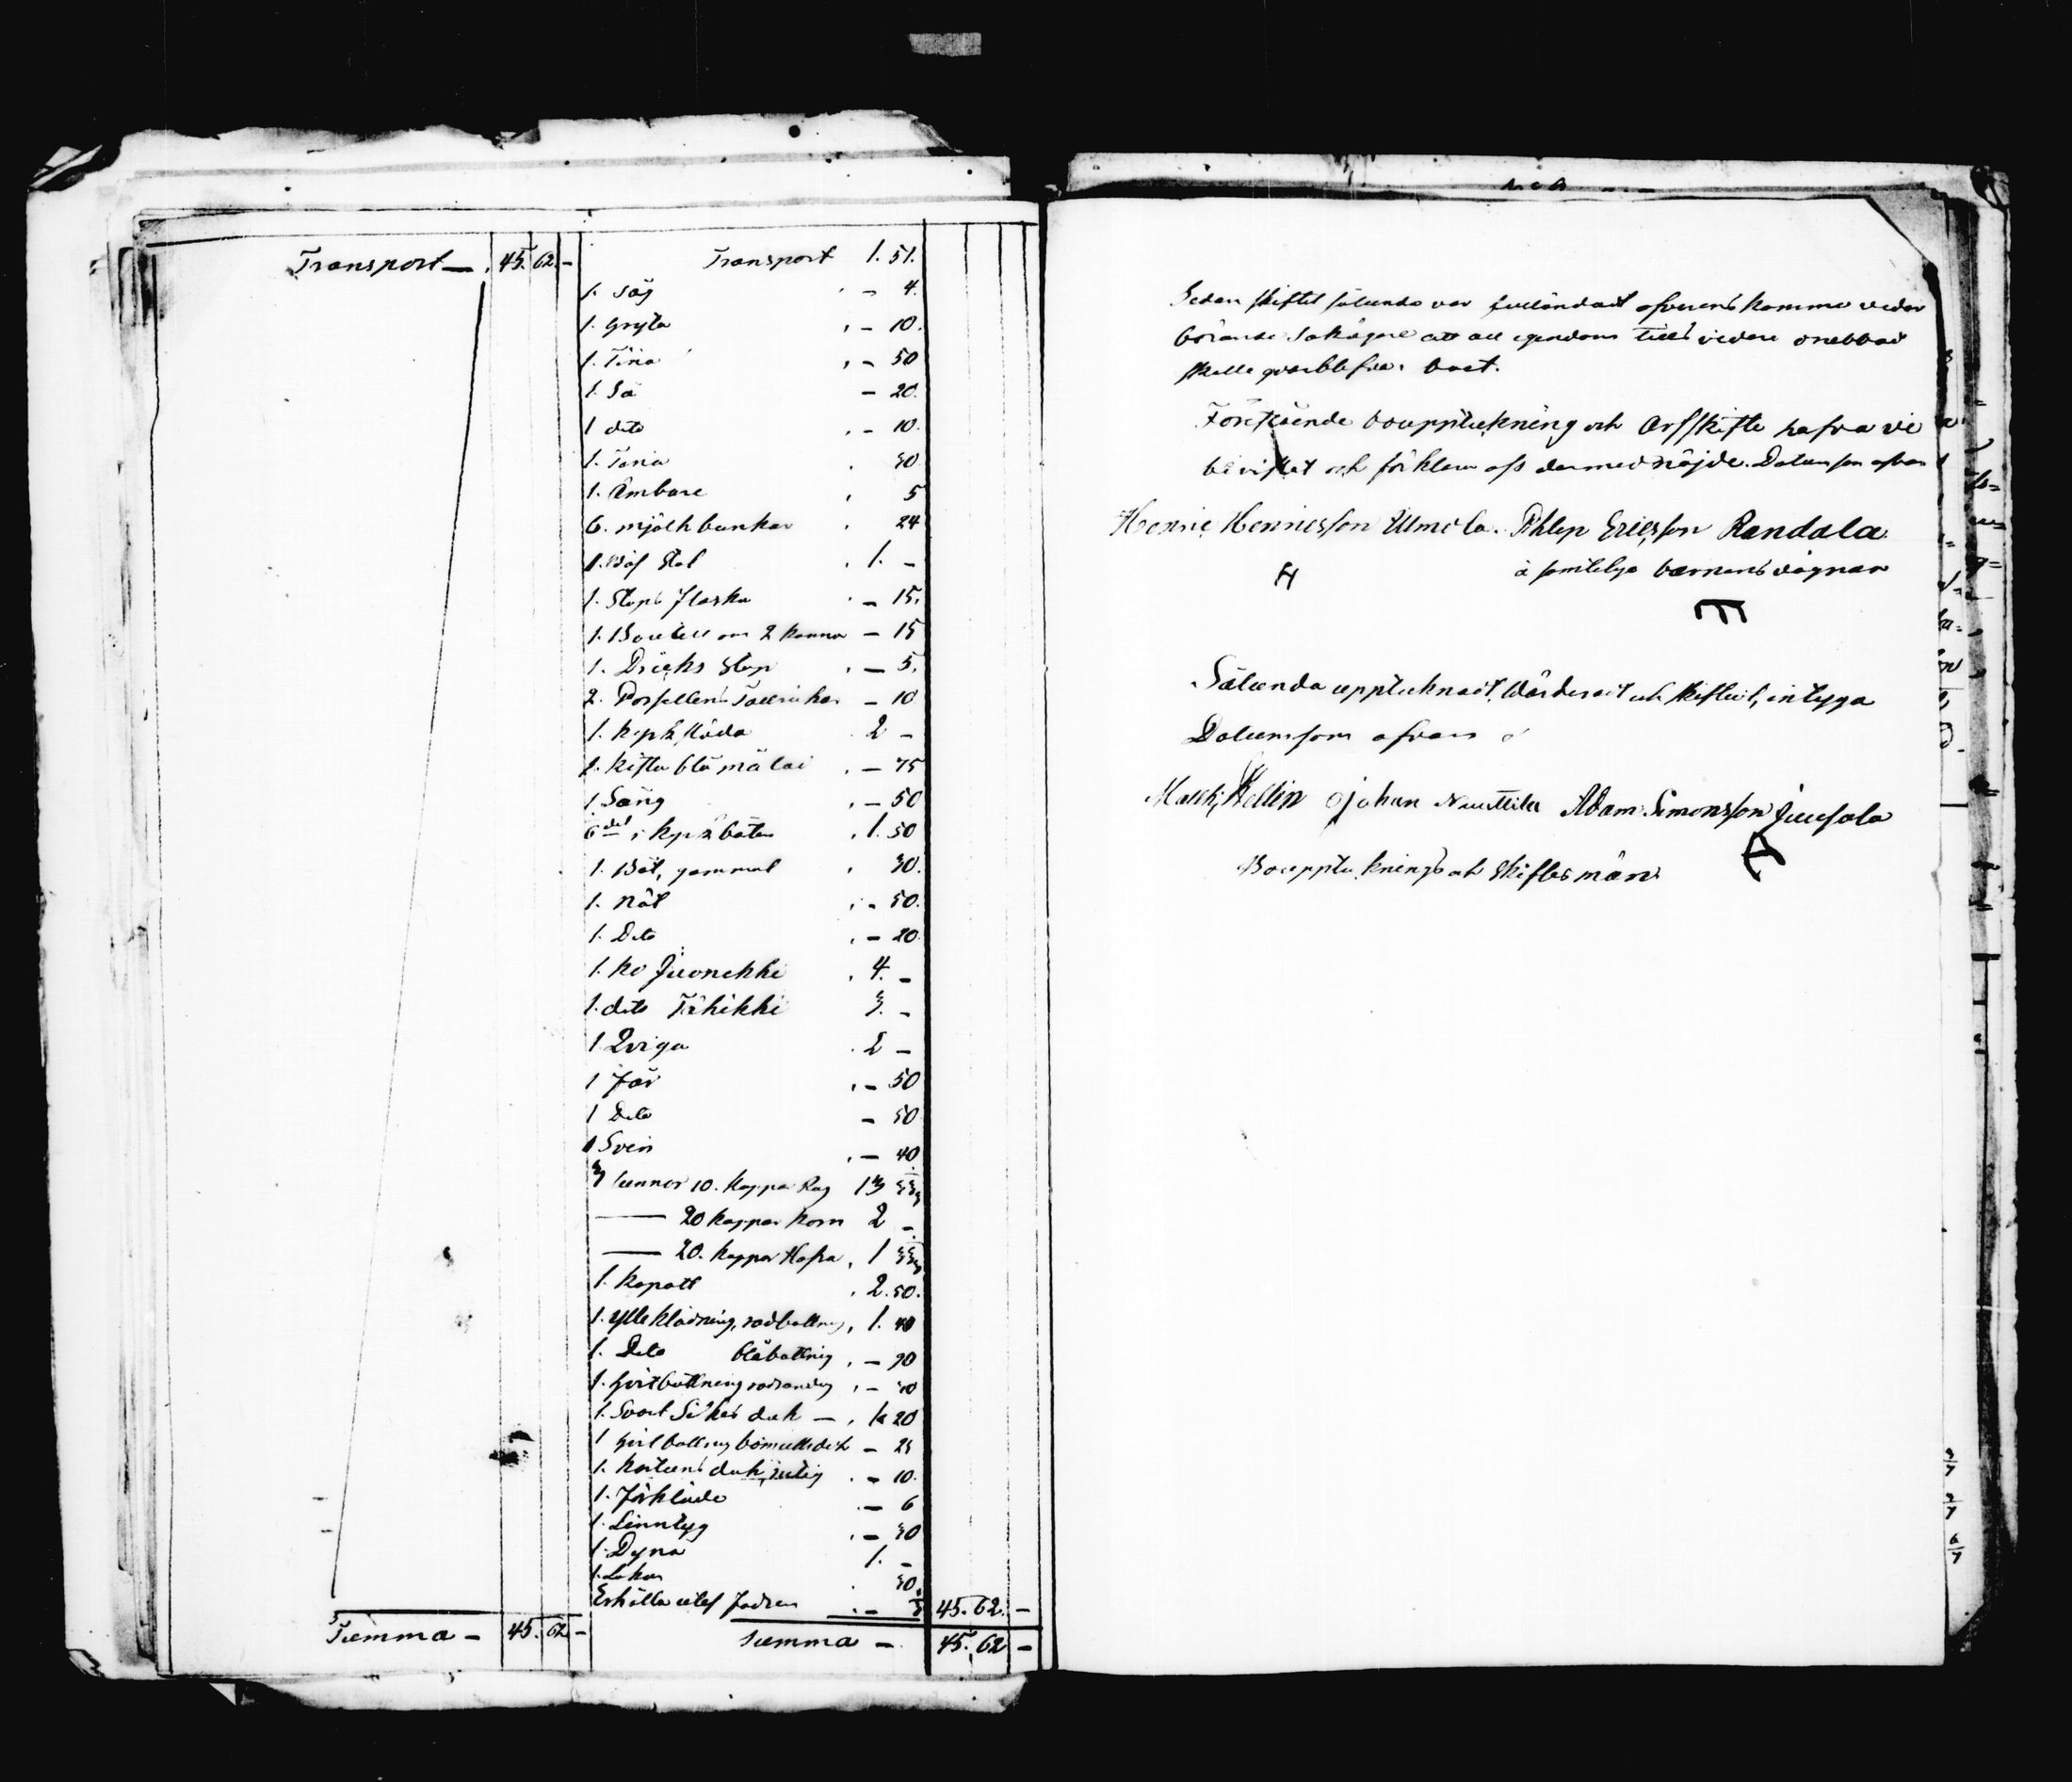 Transport — 45. 62. —
Transport 1. 51.
1. Såg — 4.
1. Gryta — 10.
1. Tina — 50
1. Så — 20.
1 dito — 10.
1. Tina 30
1. Ämbare 5
6. mjölkbunkar 24
1. Wäf Stol 1. —
1. Stops flaska — 15.
1. Boutell om 2 kannor — 15
1. Dricks stop — 5.
2. Porsellens Tallrikar — 10
1. kyrk släda 2 —
1. kista blå målad — 75
1 Säng — 50
6 del i kyrkbåten 1. 50
1. Båt, gammal 30.
1. Nöt — 50.
1. Dito — 20
1. ko Juonikki 4. —
1. dito Tähikki 3. —
1 Qviga 2 —
1 Får — 50
1 Dito — 50
1 Svin — 40
3 tunnor 10. kappar Råg 13 33
— 20 kappar korn 2 —
— 20. kappar Hafra 1 33
1. kapott 2. 50.
1. ylle klädning, rödbottnig 1. 40
1. Dito blåbottnig — 90
1. hvitbottnig rödrandig — 40
1. Svart Silkes duk — 1. 20
1 hvitbottnig bomullsduk — 25
1. kartuns duk, rutig — 10.
1. Förkläde — 6
1. Linntyg — 30
1. Dyna 1. —
1. Lakan 30
Erhålla utaf Fadren — 45. 62. —
Summa — 45. 62 —
Summa — 45. 62 —
Sedan skiftet sålunda var fulländadt öfverens kommo veder
börande Sakägare att all egendom tills vidare orubbad
skulle qvarblifva i boet.
Förestående bouppteckning och Arfskifte hafva vi
bevistat och förklara oss dermed nöjde. Datum som ofvan
Henric Henricsson Ulmala. Philip Ericsson Randala
H å samtliga barnens vägnar
m
Sålunda upptecknadt, värderadt och skiftadt, intyga
Datum som ofvan
Matts Kellin Johan Nuuttila Adam Simonsson Juusola
A
Bouppteknings och Skiftes män.